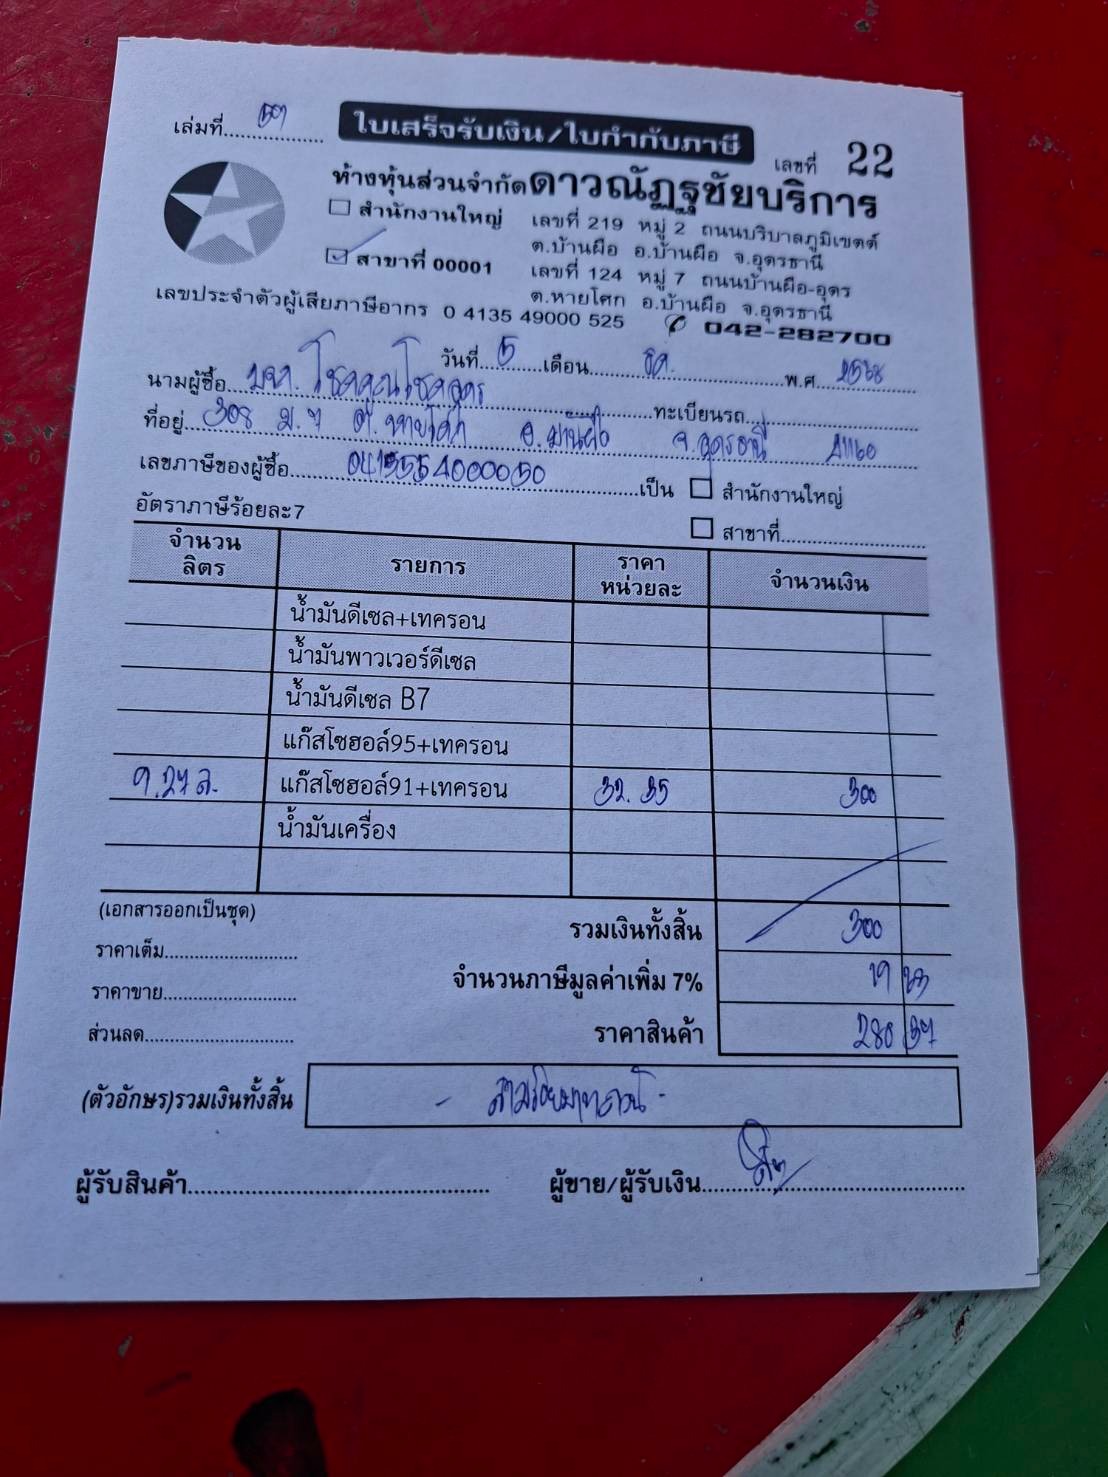 เล่มที่
ใบเสร็จรับเงิน/ใบกำกับภาษี
เลขที่ 22
ห้างหุ้นส่วนจำกัดดาวณัฏฐชัยบริการ
สำนักงานใหญ่ เลขที่ 219 หมู่ 2 ถนนบริบาลภูมิเขตต์
ต.บ้านผือ อ.บ้านผือ จ.อุดรธานี
สาขาที่ 00001 เลขที่ 124 หมู่ 7 ถนนบ้านผือ-อุดร
ต.หายโศก อ.บ้านผือ จ.อุดรธานี
เลขประจำตัวผู้เสียภาษีอากร 0 4135 49000 525 042-282700
วันที่ 5 เดือน ธค. พ.ศ 2568
นามผู้ซื้อ โชคคูณโชคอุดร ทะเบียนรถ
ที่อยู่ 308 ม.7 ต.หายโศก อ.บ้านผือ จ.อุดรธานี 41160
เลขภาษีของผู้ซื้อ 0415554000050 เป็น สำนักงานใหญ่
อัตราภาษีร้อยละ7 สาขาที่
จำนวนลิตร รายการ ราคาหน่วยละ จำนวนเงิน
น้ำมันดีเซล+เทครอน
น้ำมันพาวเวอร์ดีเซล
น้ำมันดีเซล B7
แก๊สโซฮอล์95+เทครอน
9.27 ล. แก๊สโซฮอล์91+เทครอน 32.35 300
น้ำมันเครื่อง
(เอกสารออกเป็นชุด) รวมเงินทั้งสิ้น 300
ราคาเต็ม
จำนวนภาษีมูลค่าเพิ่ม 7% 19 63
ราคาขาย
ส่วนลด ราคาสินค้า 280 37
(ตัวอักษร)รวมเงินทั้งสิ้น - สามร้อยบาทถ้วน -
ผู้รับสินค้า ผู้ขาย/ผู้รับเงิน